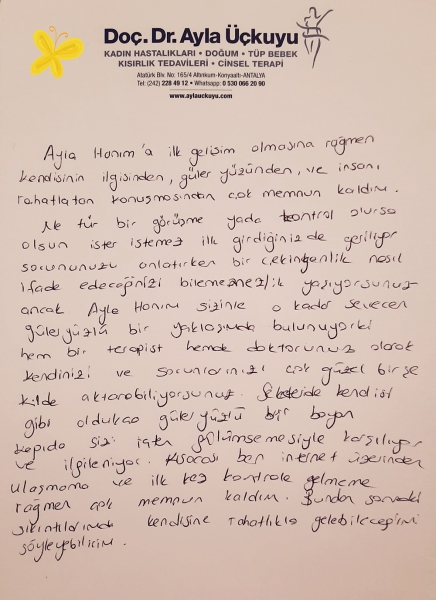 Doç. Dr. Ayla Üçkuyu
KADIN HASTALIKLARI • DOĞUM • TÜP BEBEK
KISIRLIK TEDAVİLERİ • CİNSEL TERAPİ
Atatürk Blv. No: 165/4 Altınkum-Konyaaltı-ANTALYA
Tel: (242) 228 49 12 • Whatsapp: 0 530 066 20 90
www.aylauckuyu.com
Ayla Hanım'a ilk gelişim olmasına rağmen
kendisinin ilgisinden, güler yüzünden, ve insanı
rahatlatan konuşmasından çok memnun kaldım.
Ne tür bir görüşme yada kontrol olursa
olsun ister istemez ilk girdiğinizde geriliyor
sorununuzu anlatırken bir çekingenlik nasıl
ifade edeceğinizi bilememezlik yaşıyorsunuz
ancak Ayla Hanım sizinle o kadar sevecen
güleryüzlü bir yaklaşımda bulunuyorki
hem bir terapist hemde doktorunuz olarak
kendinizi ve sorunlarınızı çok güzel bir şe
kilde aktarabiliyorsunuz. Sekteride kendisi
gibi oldukca güleryüzlü bir bayan
kapıda sizi içten gülümsemesiyle karşılıyor
ve ilgileniyor. Kısacası ben internet üzerinden
ulaşmama ve ilk kez kontrole gelmeme
rağmen çok memnun kaldım. Bundan sonraki
sıkıntılarımda kendisine rahatlıkla gelebileceğimi
söyleyebilirim.